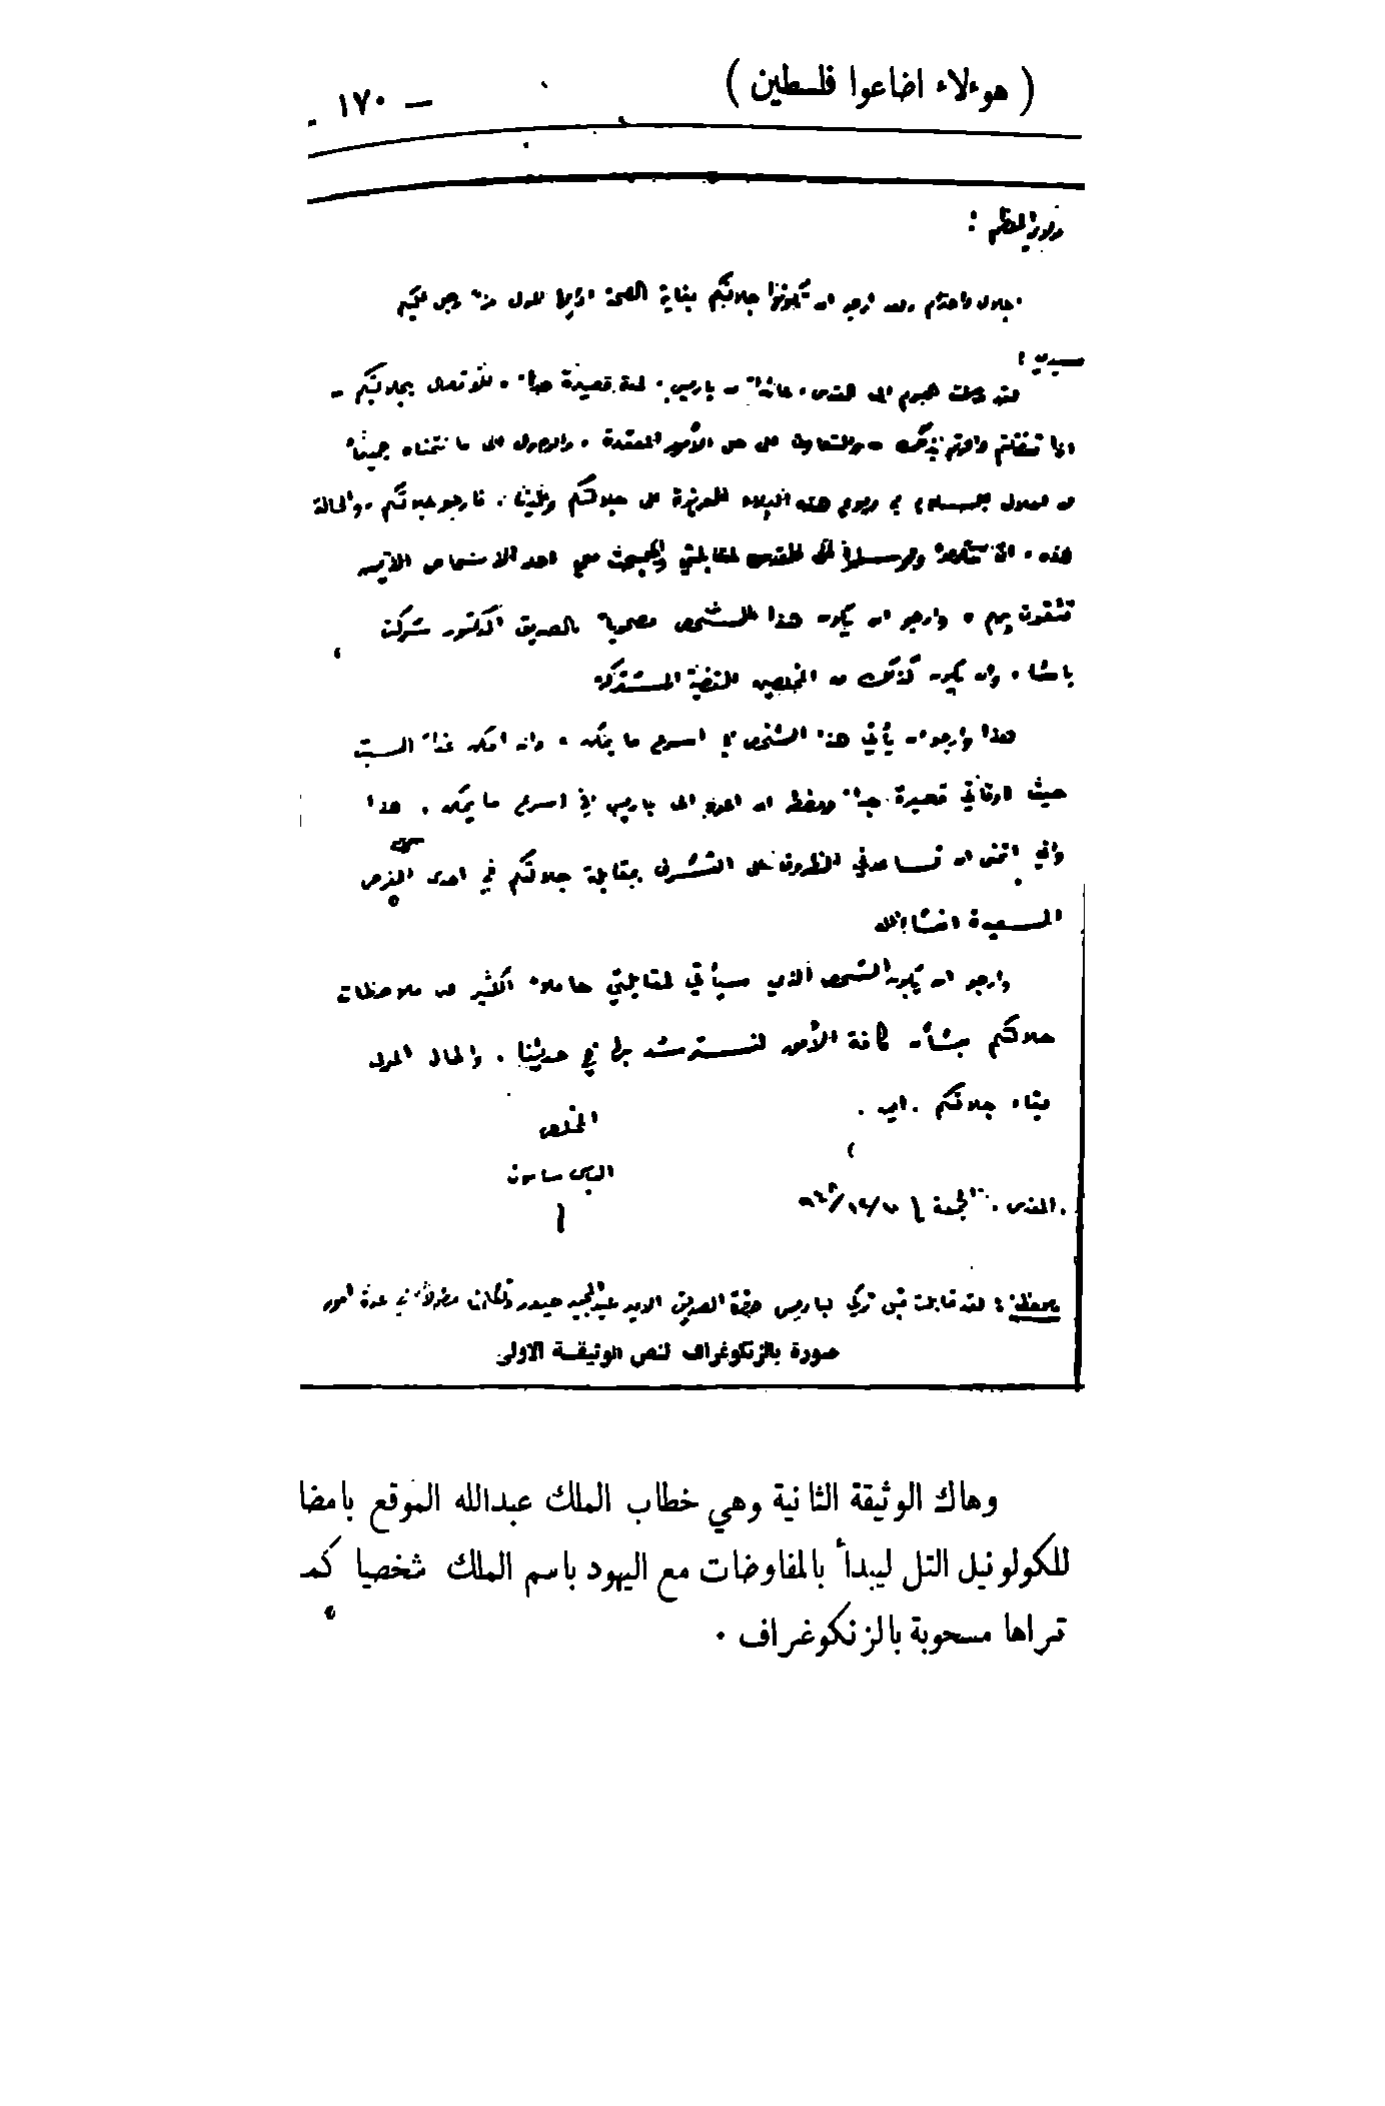 ( هوءلاء اضاعوا فلسطين )
— ١٧٠
مولاي المعظم :
ارجو ان تكونوا جلالتكم بغاية الصحة
سيدي :
لقد وصلت اليوم الى القدس باريس لمدة قصيرة جداً للاتصال بجلالتكم —
اذا تفضلتم بذلك والتعاون على حل الأمور المعقدة ، والوصول الى ما نتمناه جميعنا
هذه البلاد العزيزة على جلالتكم وعلينا . فارجو جلالتكم ، والحالة
هذه ، ان القدس لمقابلتي والبحث معي احد الاشخاص الذين
تثقون بهم ، وارجو ان يكون هذا الشخص مصحوبا بالصديق الدكتور شوكت
باشا ، وان يكون كذلك من المخلصين للقضية المشتركة
هذا وارجو ان يأتي هذا الشخص في اسرع ما يمكن ، وان امكن غداً السبت
حيث اوقاتي قصيرة جداً ومضطر ان اعود الى باريس في اسرع ما يمكن . هذا
واني اتمنى ان تساعدني الظروف على التشرف بمقابلة جلالتكم في احدى الفرص
السعيدة انشاالله
وارجو ان يكون الشخص الذي سيأتي لمقابلتي حاملا الكثير من ملاحظات
جلالتكم بشأن كافة الأمور لنسترشد بها في حديثنا . والله المولى
بقاء جلالتكم .
المخلص
الياس ساسون
القدس . الجمعة
ملاحظة : لقد قابلت قبل تركي لباريس حضرة الصديق الامير عبدالمجيد حيدر في عدة أمور
صورة بالزنكوغراف لنص الوثيقة الاولى
وهاك الوثيقة الثانية وهي خطاب الملك عبدالله الموقع بامضا
للكولونيل التل ليبدأ بالمفاوضات مع اليهود باسم الملك شخصيا كمـ
تراها مسحوبة بالزنكوغراف ٠